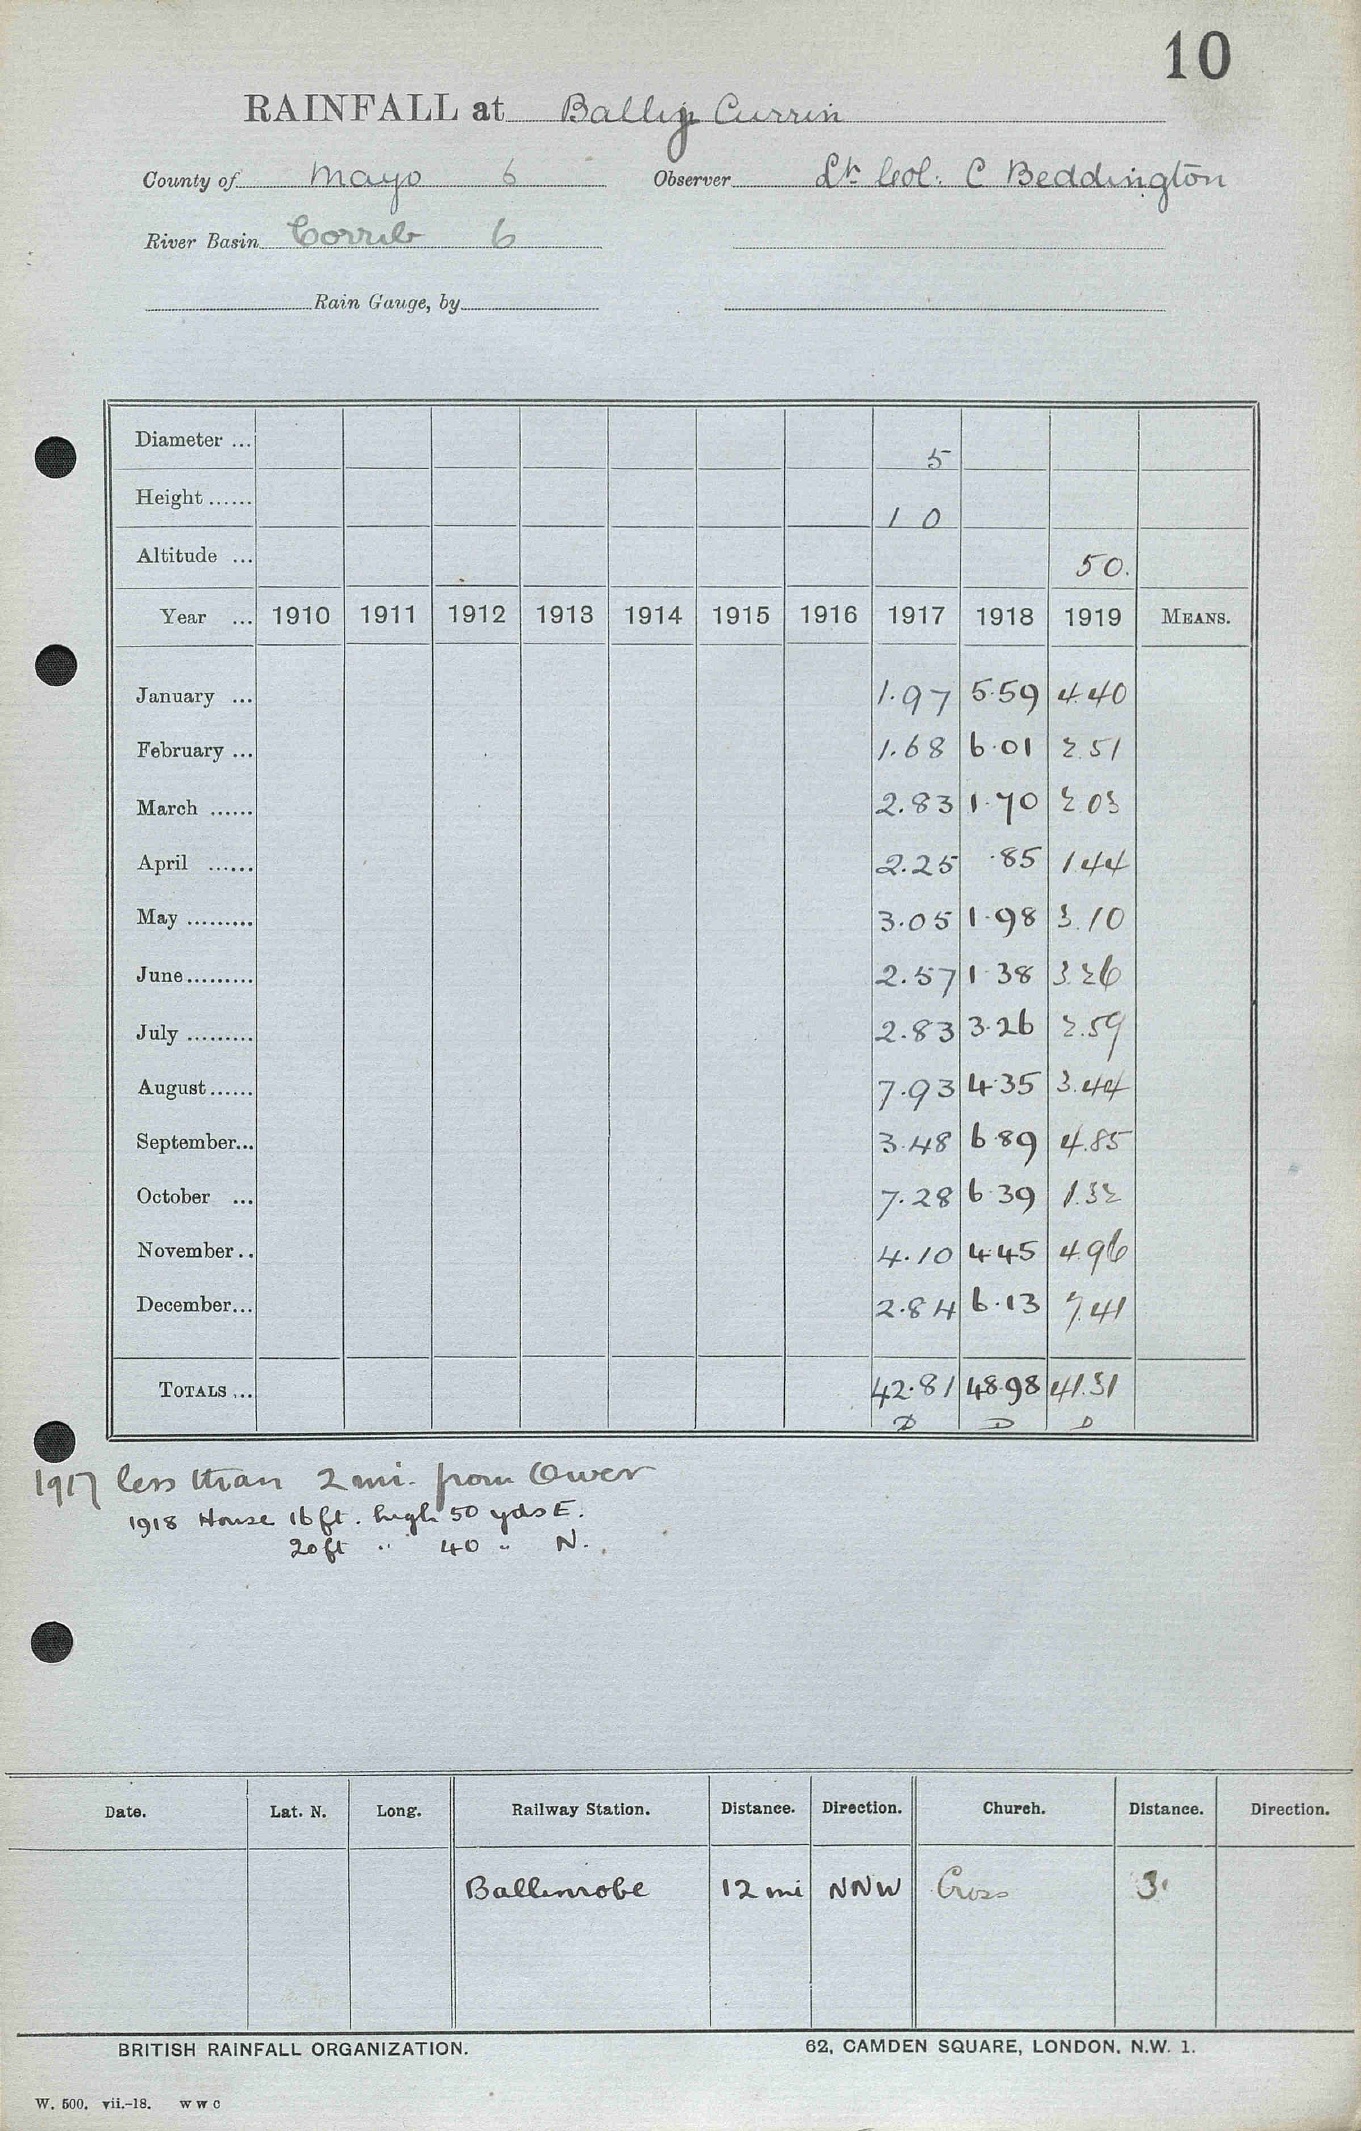 10
RAINFALL at Bally Currin
County of Mayo 6 Observer Lt Col. C Beddington
River Basin Corrib 6
Rain Gauge, by
Diameter ... 5
Height ...... 1 0
Altitude ... 50.
Year ... 1910 1911 1912 1913 1914 1915 1916 1917 1918 1919 MEANS.
January ... 1.97 5.59 4.40
February ... 1.68 6.01 2.51
March ...... 2.83 1.70 2.03
April ...... 2.25 .85 1.44
May ......... 3.05 1.98 3.10
June......... 2.57 1.38 3.26
July ......... 2.83 3.26 2.59
August...... 7.93 4.35 3.44
September... 3.48 6.89 4.85
October ... 7.28 6.39 1.32
November.. 4.10 4.45 4.96
December... 2.84 6.13 7.41
TOTALS ... 42.81 48.98 41.31
D D D
1917 less than 2 mi. from Ower
1918 House 16 ft. high 50 yds E.
20 ft " 40 " N.
Date. Lat. N. Long. Railway Station. Distance. Direction. Church. Distance. Direction.
Ballinrobe 12 mi NNW Cross 3
BRITISH RAINFALL ORGANIZATION. 62, CAMDEN SQUARE, LONDON. N.W. 1.
W. 500. vii.-18. W W C